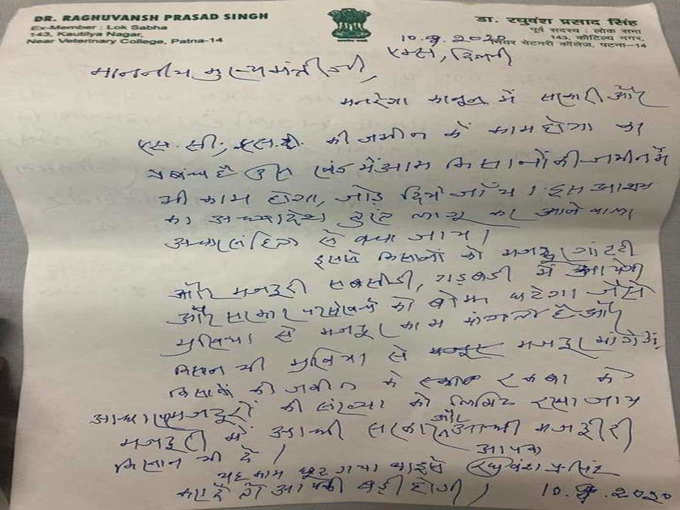 DR. RAGHUVANSH PRASAD SINGH
Ex-Member : Lok Sabha
143, Kautilya Nagar,
Near Veterinary College, Patna-14
डा. रघुवंश प्रसाद सिंह
पूर्व सदस्य : लोक सभा
143, कौटिल्य नगर,
नियर वेटनरी कॉलेज, पटना-14
10.9.2020
एम्स, दिल्ली
माननीय मुख्यमंत्री जी,
मनरेगा कानून में सरकारी और
एस.सी., एस.टी. की जमीन में काम होगा का
प्रबंध है उस खंड में आम किसानों की जमीन में
भी काम होगा, जोड़ दिया जाय। इस आशय
का अध्यादेश तुरंत लागू कर आने वाला
आचार संहिता से बचा जाय।
इससे किसानों को मजदूर गारंटी
और मजदूरी सबसीडी, गड़बड़ी में
और सरकार पर को बोझ घटेगा जैसे
मुखिया से मजदूर काम मांगते हैं और
किसान भी मुखिया से मजदूर मांगेंगे,
किसान की जमीन के रकबा के
आधार पर मजदूरों की संख्या को लिमिट रखा जाय
मजदूरी में आधी सरकार और आधी मजदूरी
किसान भी दें।
यह काम छूट गया था इसे
कर दें तो आपकी बड़ी होगी।
आपका
रघुवंश प्रसाद सिंह
10.9.2020